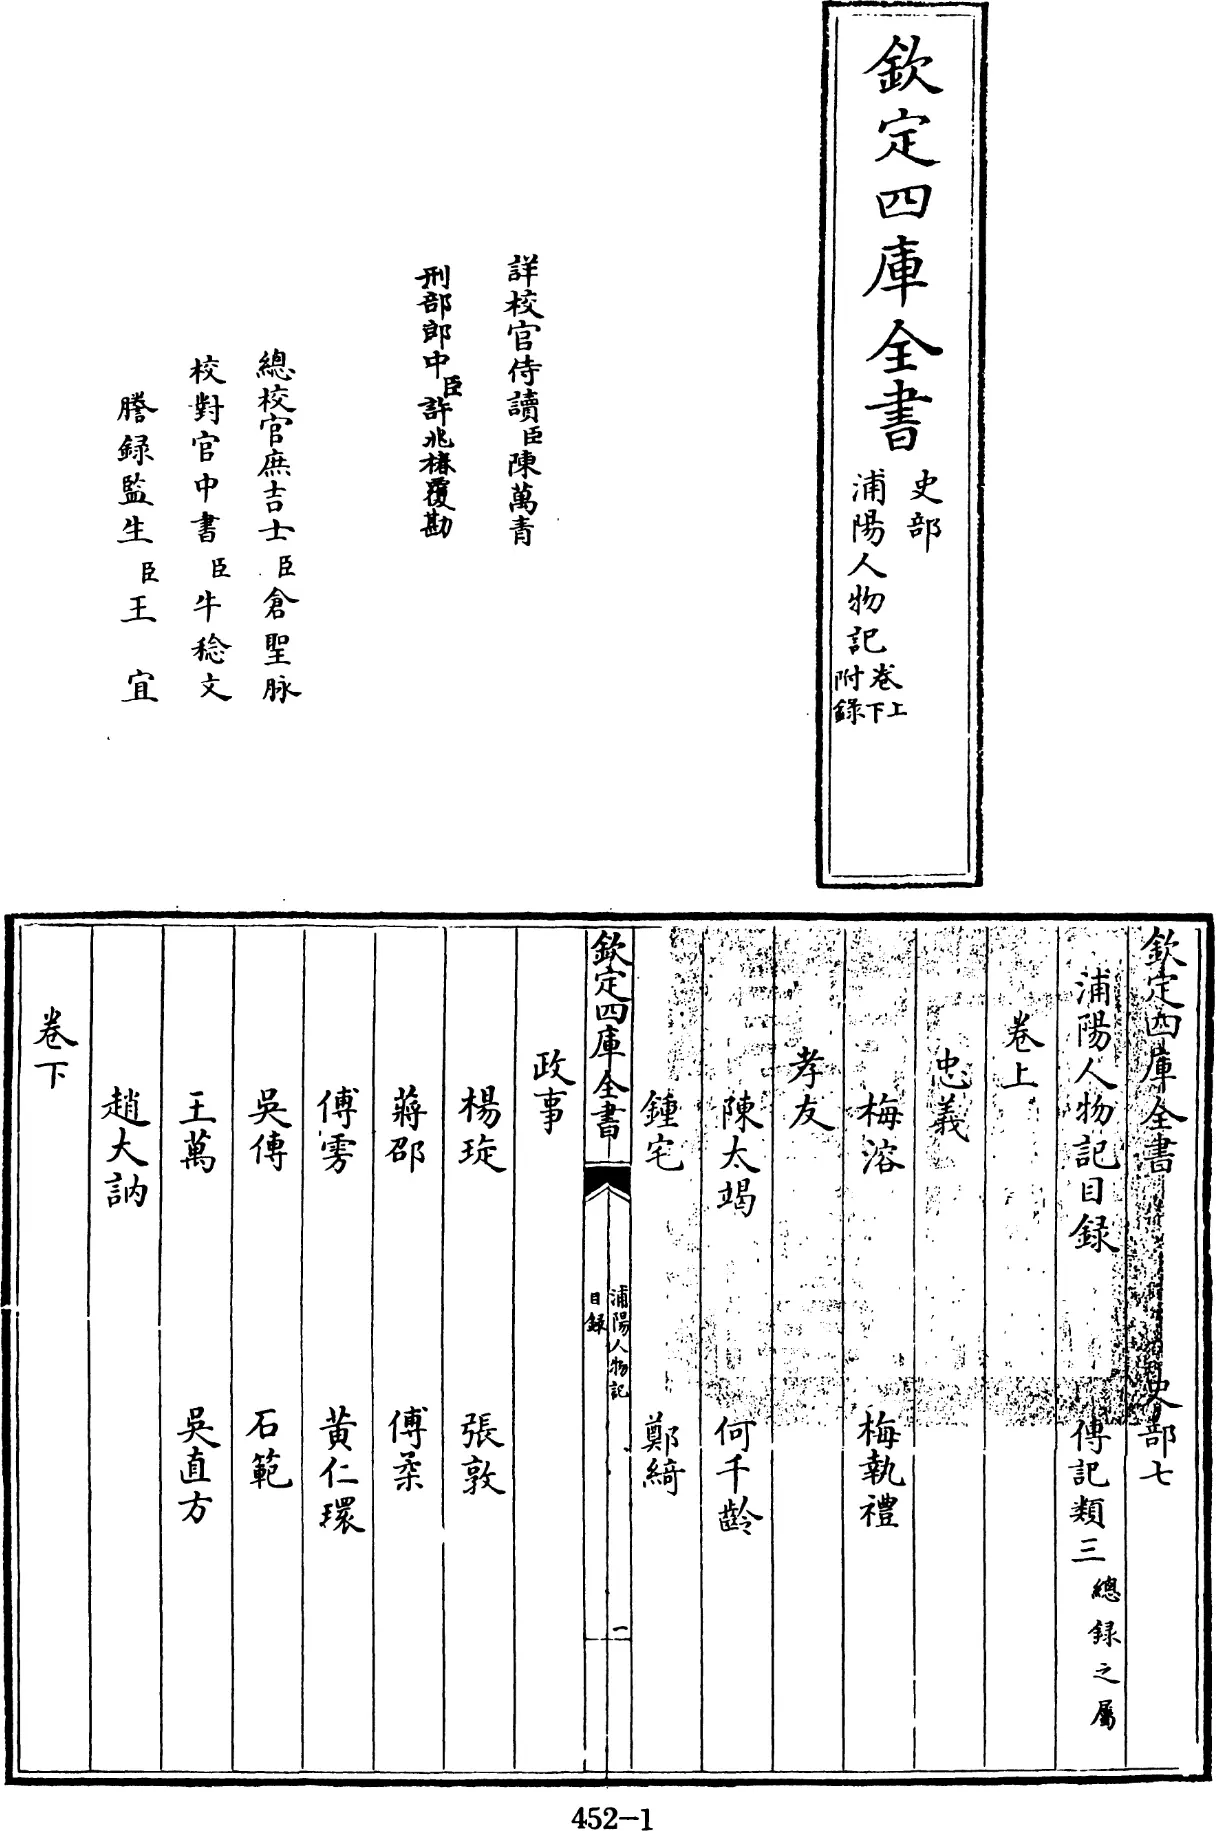 欽定四庫全書
史部
浦陽人物記
卷上
下
附錄
詳校官侍讀臣陳萬青
刑部郎中臣許兆椿覆勘
總校官庶吉士臣倉聖脉
校對官中書臣牛稔文
謄錄監生臣王宜
欽定四庫全書 史部七
浦陽人物記目録 傳記類三 總録之屬
卷上
忠義
梅溶 梅執禮
孝友
陳太竭 何千齡
鍾宅 鄭綺
欽定四庫全書
浦陽人物記
目録
一
政事
楊璇 張敦
蔣邵 傅柔
傅雱 黃仁環
吳傳 石範
王萬 吳直方
趙大訥
卷下
452-1